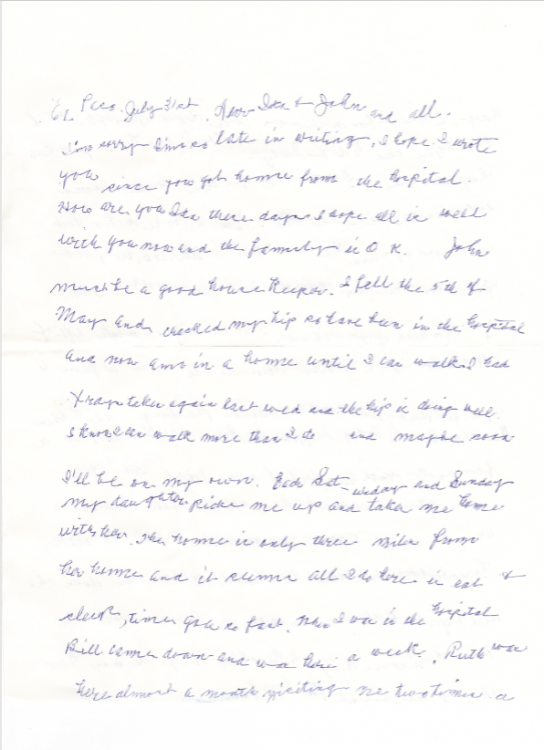 El Paso. July 31st. Dear Ida + John and all.
I'm sorry I'm so late in writing, I hope I wrote
you since you got home from the hospital.
How are you Ida these days I hope all is well
with you now and the family is O K. John
must be a good house keeper. I fell the 5th of
May and cracked my hip so have been in the hospital
and now am in a home until I can walk. I had
Xrays taken again last wed and the hip is doing well.
I know I can walk more than I do and maybe soon
I'll be on my own. Each Saturday and Sunday
my daughter picks me up and takes me home
with her. The home is only three miles from
her home and it seems all I do here is eat +
sleep, time goes so fast. When I was in the hospital
Bill came down and was here a week. Ruth was
here almost a month visiting me two times a